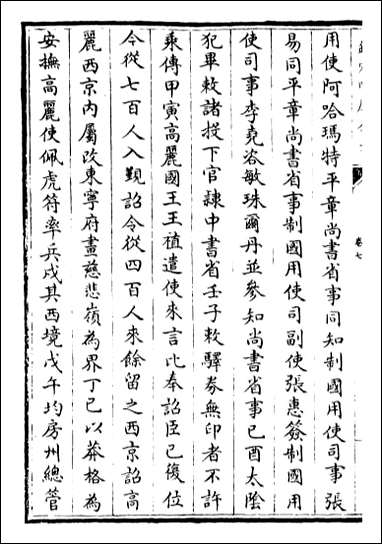 用使阿哈瑪特平章尚書省事同知制國用使司事張
易同平章尚書省事制國用使司副使張惠簽制國用
使司事李堯咨敏珠爾丹並參知尚書省事己酉太陰
犯畢敕諸投下官隸中書省壬子敕驛券無印者不許
乘傳甲寅高麗國王王植遣使來言比奉詔臣已復位
今從七百人入覲詔令從四百人來餘留之西京詔高
麗西京內屬改東寧府畫慈悲嶺為界丁巳以莽格為
安撫高麗使佩虎符率兵戍其西境戊午均房州總管
卷七